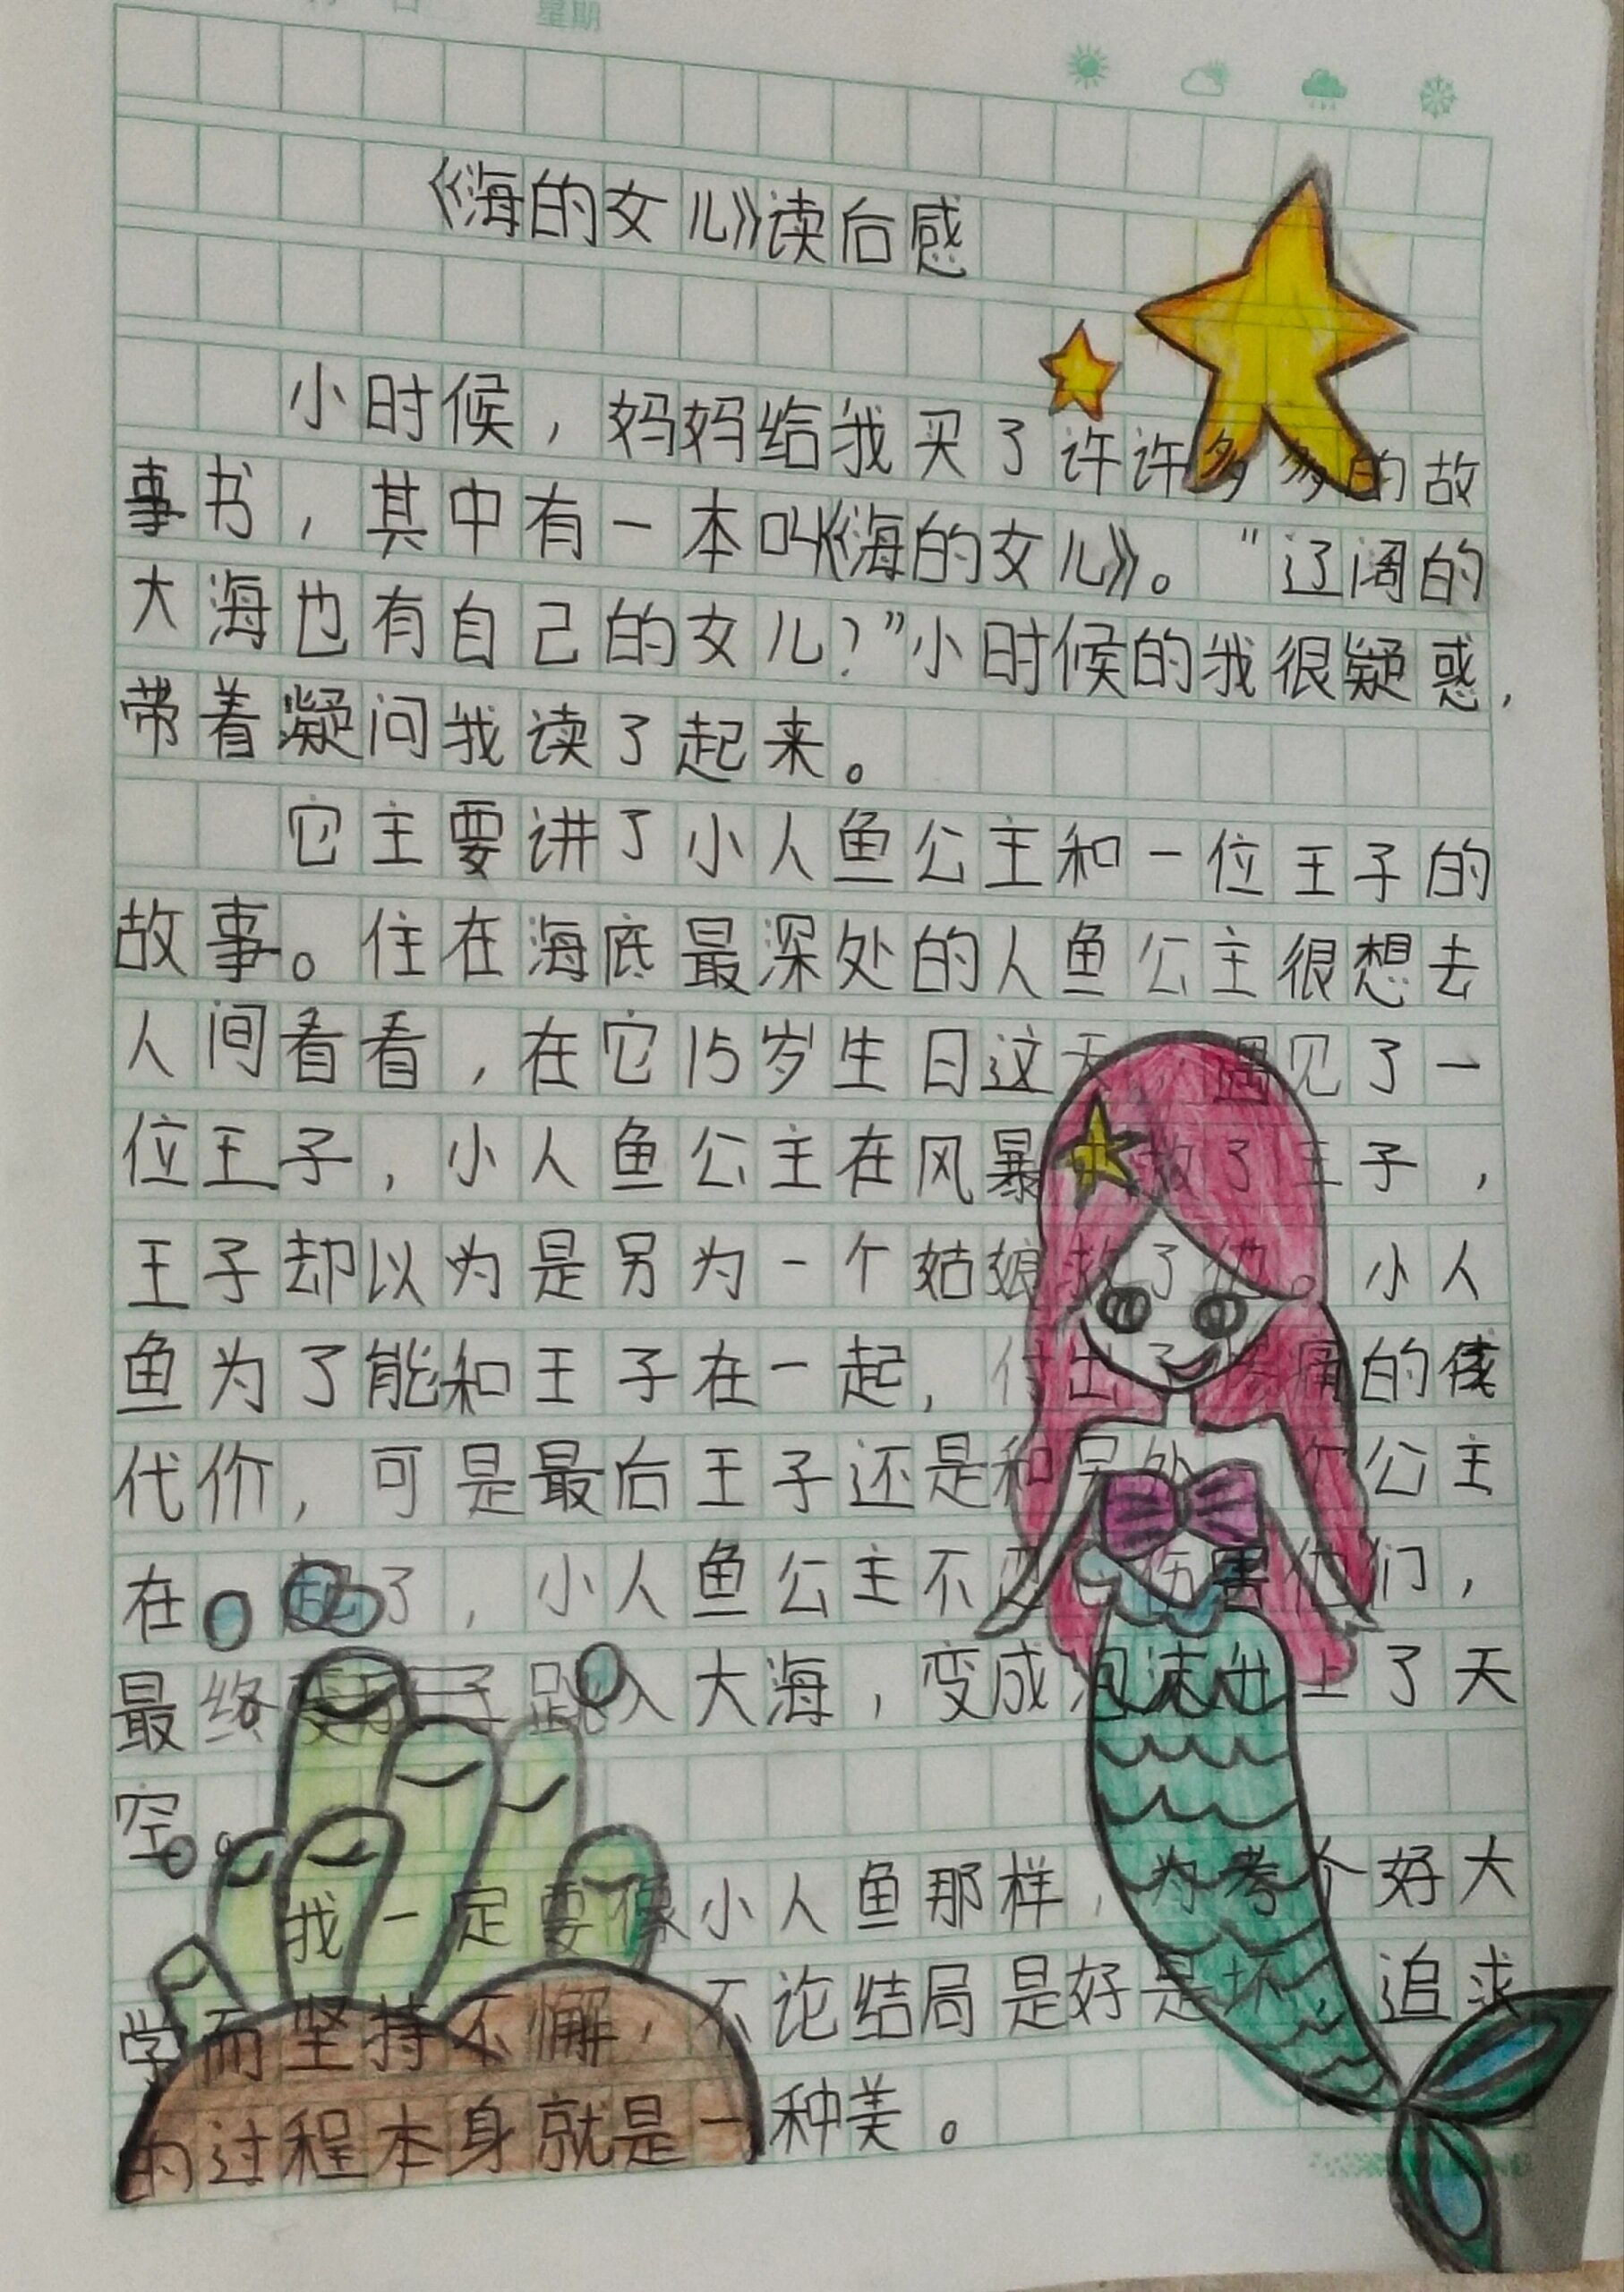 星期
《海的女儿》读后感
小时候，妈妈给我买了许许多多的故
事书，其中有一本叫《海的女儿》。“辽阔的
大海也有自己的女儿？”小时候的我很疑惑，
带着凝问我读了起来。
它主要讲了小人鱼公主和一位王子的
故事。住在海底最深处的人鱼公主很想去
人间看看，在它15岁生日这天，遇见了一
位王子，小人鱼公主在风暴中救了王子，
王子却以为是另为一个姑娘救了他。小人
鱼为了能和王子在一起，付出了惨痛的
代价，可是最后王子还是和另外一个公主
在一起了，小人鱼公主不忍心伤害他们，
最终跳入大海，变成泡沫升上了天
空。
我一定要像小人鱼那样，为考个好大
学而坚持不懈，不论结局是好是坏，追求
的过程本身就是一种美。